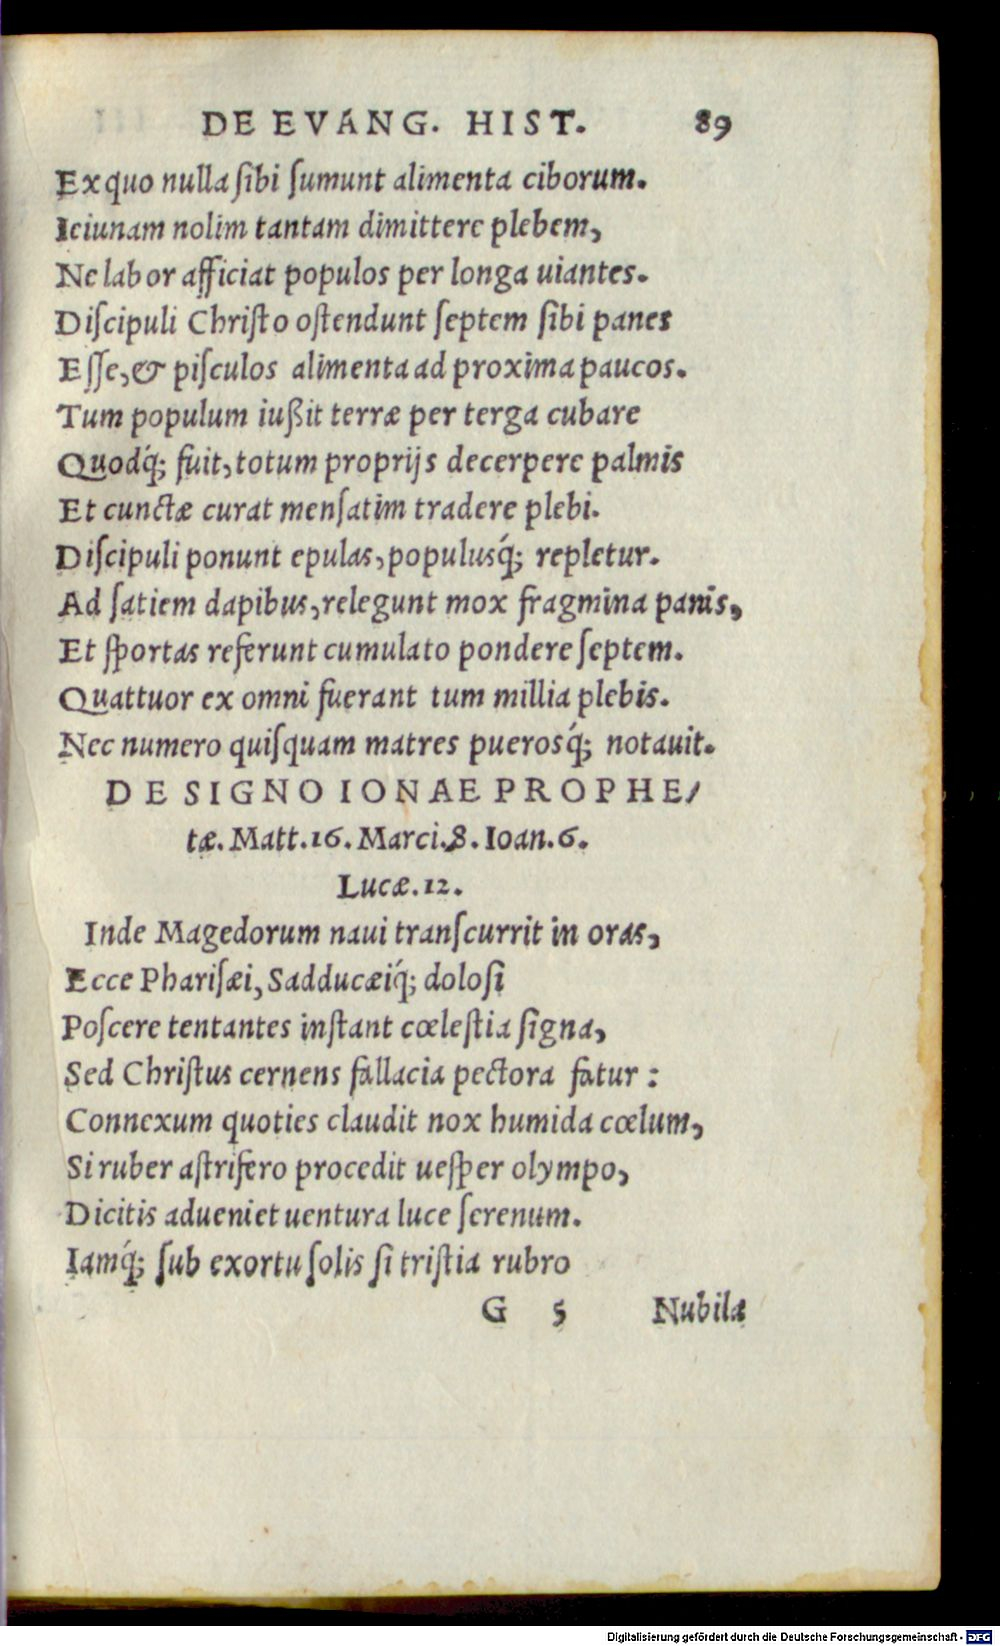 DE EVANG. HIST. 89
Ex quo nulla ſibi ſumunt alimenta ciborum.
Ieiunam nolim tantam dimittere plebem,
Ne labor afficiat populos per longa uiantes.
Diſcipuli Chriſto oſtendunt ſeptem ſibi panes
Eſſe, & piſculos alimenta ad proxima paucos.
Tum populum iußit terræ per terga cubare
Quodq́; fuit, totum proprijs decerpere palmis
Et cunctæ curat menſatim tradere plebi.
Diſcipuli ponunt epulas, populusq́; repletur.
Ad ſatiem dapibus, relegunt mox fragmina panis,
Et ſportas referunt cumulato pondere ſeptem.
Quattuor ex omni fuerant tum millia plebis.
Nec numero quiſquam matres puerosq́; notauit.
DE SIGNO IONAE PROPHE/
tæ. Matt.16. Marci.8. Ioan.6.
Lucæ.12.
Inde Magedorum naui tranſcurrit in oras,
Ecce Phariſæi, Sadducæiq́; doloſi
Poſcere tentantes inſtant cœleſtia ſigna,
Sed Chriſtus cernens fallacia pectora fatur :
Connexum quoties claudit nox humida cœlum,
Si ruber aſtrifero procedit ueſper olympo,
Dicitis adueniet uentura luce ſerenum.
Iamq́; ſub exortu ſolis ſi triſtia rubro
G 5 Nubila
Digitalisierung gefördert durch die Deutsche Forschungsgemeinschaft - DFG